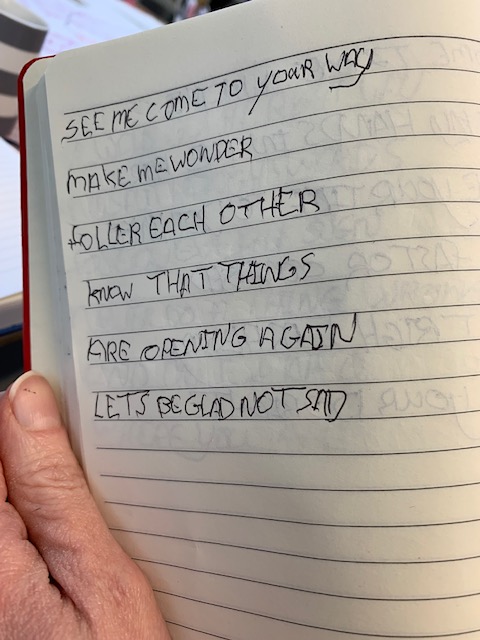 SEE ME COME TO YOUR WAY
MAKE ME WONDER
FOLLER EACH OTHER
KNOW THAT THINGS
ARE OPENING AGAIN
LETS BE GLAD NOT SAD